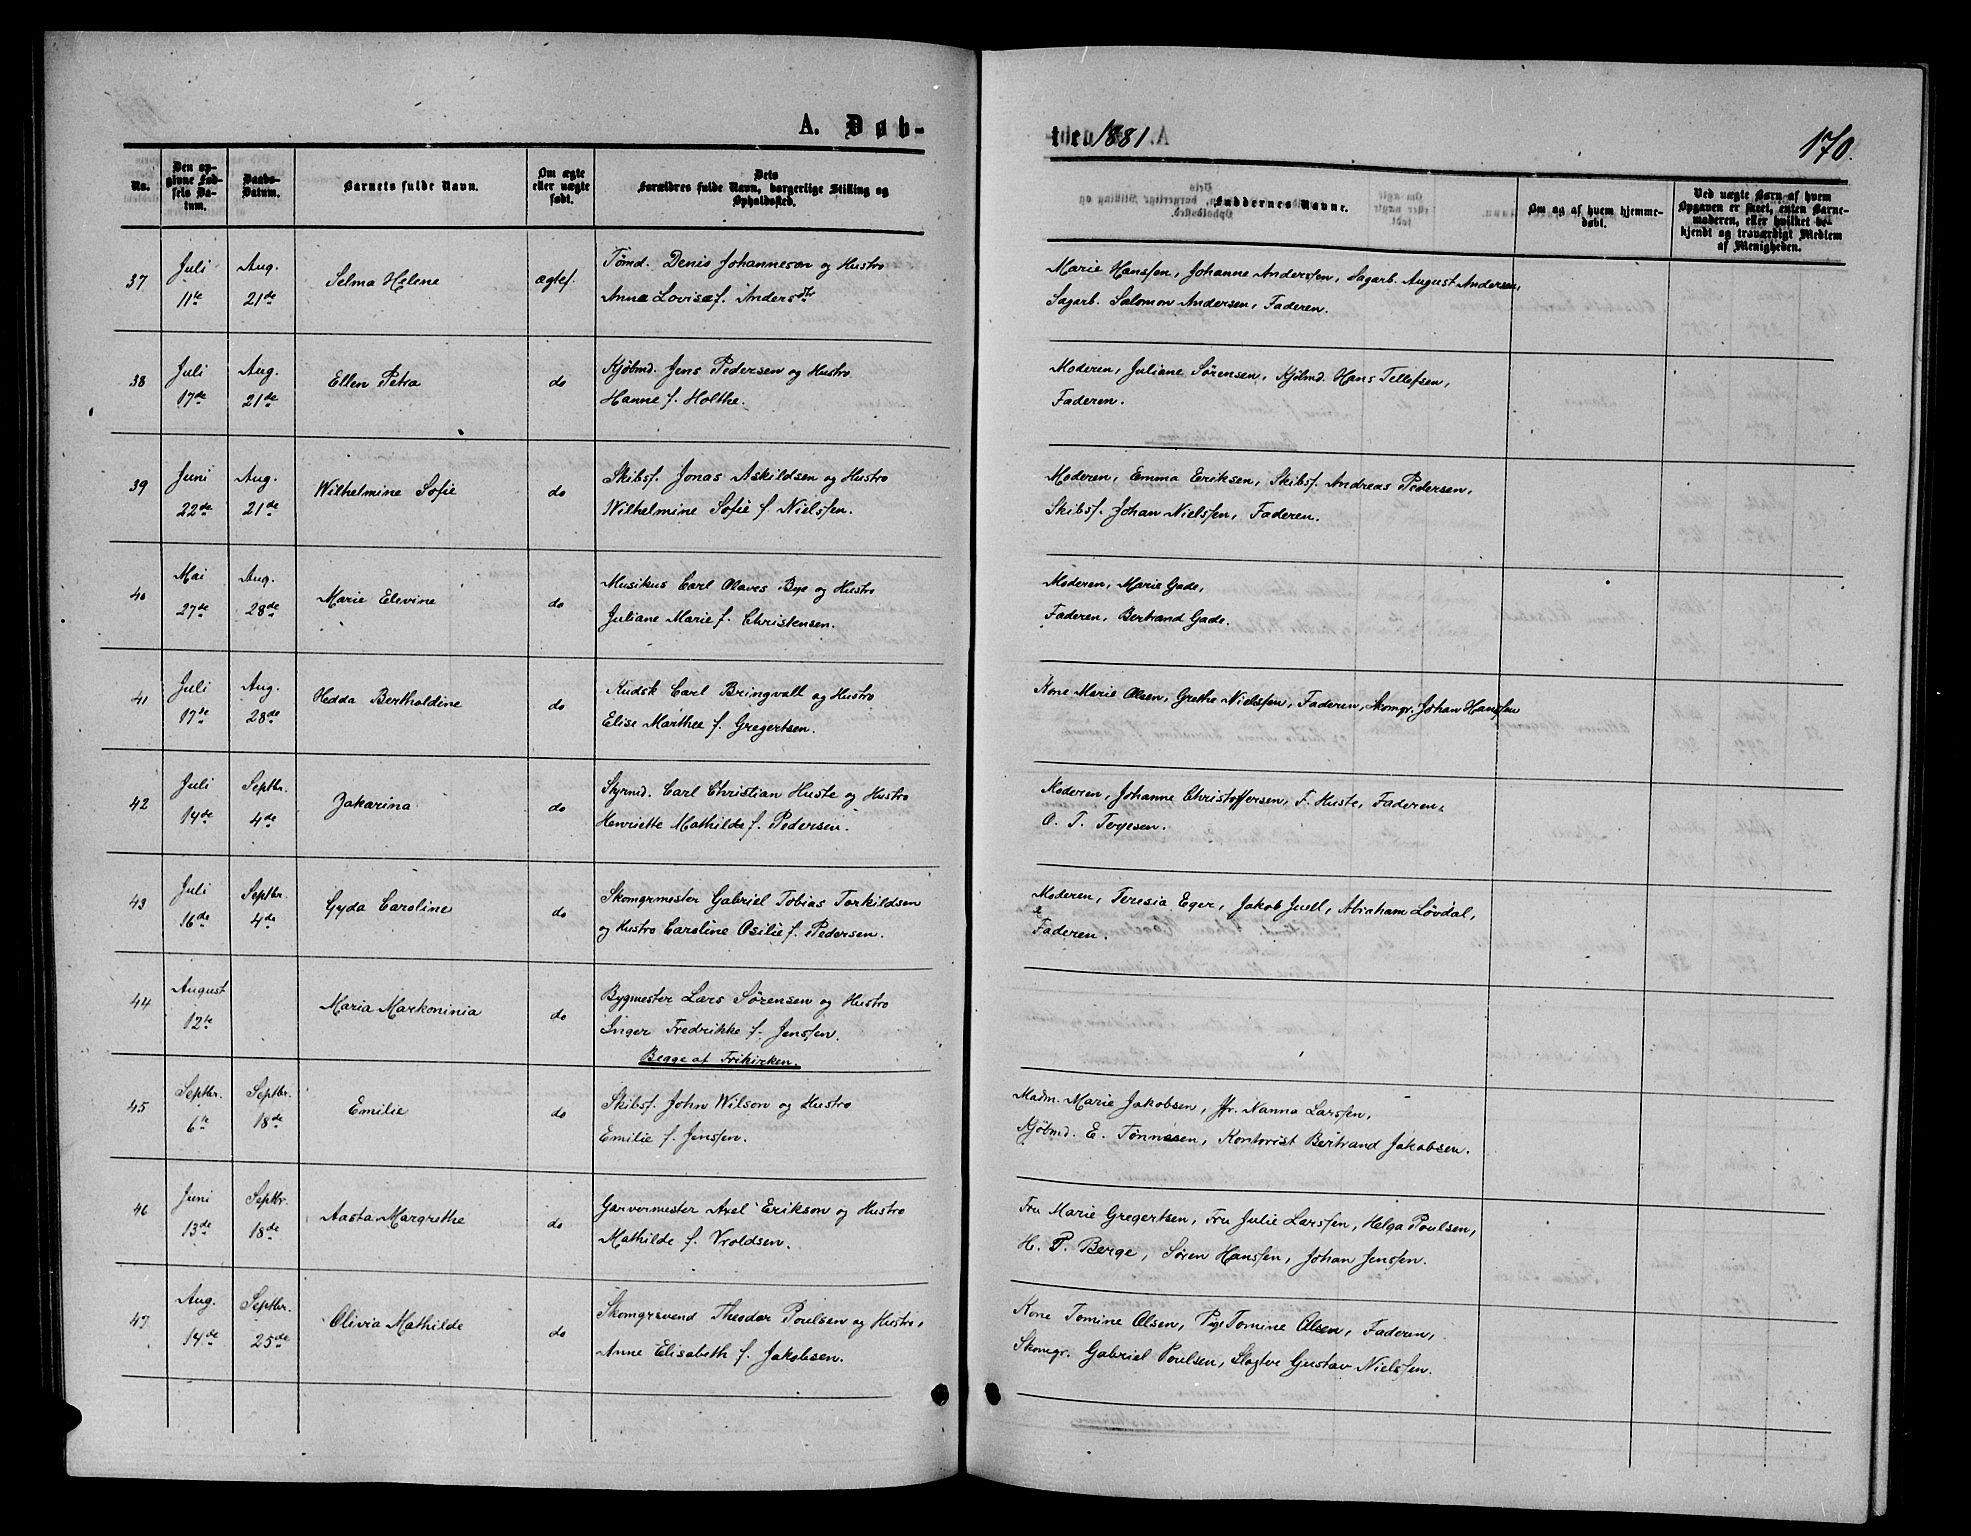 A. Døb-
te 1881.
170.
No.
Den opgivne Fødsels Datum.
Daabs-Datum.
Barnets fulde Navn.
Om ægte eller uægte født.
Dets Forældres fulde Navn, borgerlige Stilling og Opholdssted.
Faddernes Navne.
Om og af hvem hjemmedøbt.
Ved uægte Børn af hvem Opgaven er skeet, enten Barnemoderen, eller hvilket bekjendt og troværdigt Medlem af Menigheden.
37 Juli 11te Aug. 21de Selma Helene ægtef.
Tømd. Denis Johannesen og Hustro
Anna Lovise f. Andersdtr
Marie Hanssen, Johanne Anderssen, Sagarb. August Andersen,
Sagarb. Salomon Andersen, Faderen.
38 Juli 17de Aug. 21de Ellen Petra do
Kjøbmd. Jens Pedersen og Hustro
Hanne f. Holthe.
Moderen, Juliane Sørensen, Kjøbmd. Hans Tellefsen,
Faderen.
39 Juni 22de Aug. 21de Wilhelmine Sofie do
Skibsf. Jonas Askildsen og Hustro
Wilhelmine Sofie f. Nielssen.
Moderen, Emma Eriksen, Skibsf. Andreas Pedersen,
Skibsf. Johan Nielssen, Faderen.
40 Mai 27de Aug. 28de Marie Elevine do
Musikus Carl Olaves Bye og Hustro
Juliane Marie f. Christensen.
Moderen, Marie Gade,
Faderen, Bertrand Gade.
41 Juli 17de Aug. 28de Hedda Bertholdine do
Kudsk Carl Bringvall og Hustro
Elise Marthee f. Gregertsen.
Kone Marie Olsen, Grethe Nielssen, Faderen, Skomgr. Johan Hanssen
42 Juli 14de Septbr. 4de Zakarina do
Styrmd. Carl Christian Huste og Hustro
Henriette Mathilde f. Pedersen.
Moderen, Johanne Christoffersen, F. Huste, Faderen,
O. T. Terjesen.
43 Juli 16de Septbr. 4de Gyda Caroline do
Skomgrmester Gabriel Tobias Torkildsen
og Hustro Caroline Osilie f. Pedersen.
Moderen, Teresia Eger, Jakob Juell, Abraham Løvdal,
& Faderen.
44 August 12te Maria Markoninia do
Bygmester Lars Sørensen og Hustro
Inger Fredrikke f. Jenssen.
Begge af Frikirken.
45 Septbr. 6te Septbr. 18de Emilie do
Skibsf. John Wilson og Hustro
Emilie f. Jenssen.
Madm. Marie Jakobsen, Jfr. Nanna Larssen,
Kjøbmd. E. Tønnesen, Kontorist Bertrand Jakobsen.
46 Juni 13de Septbr. 18de Aasta Margrethe do
Garvermester Axel Erikson og Hustro
Mathilde f. Vroldsen.
Fru Marie Gregertsen, Fru Julie Larssen, Helga Poulsen,
H. P. Berge, Søren Hanssen, Johan Jenssen.
47 Aug. 14de Septbr. 25de Olivia Mathilde do
Skomgrsvend Theodor Poulsen og Hustro,
Anne Elisabeth f. Jakobsen.
Kone Tomine Olsen, Pige Tomine Olsen, Faderen,
Skomgr. Gabriel Poulsen, Slagter Gustav Nielssen.